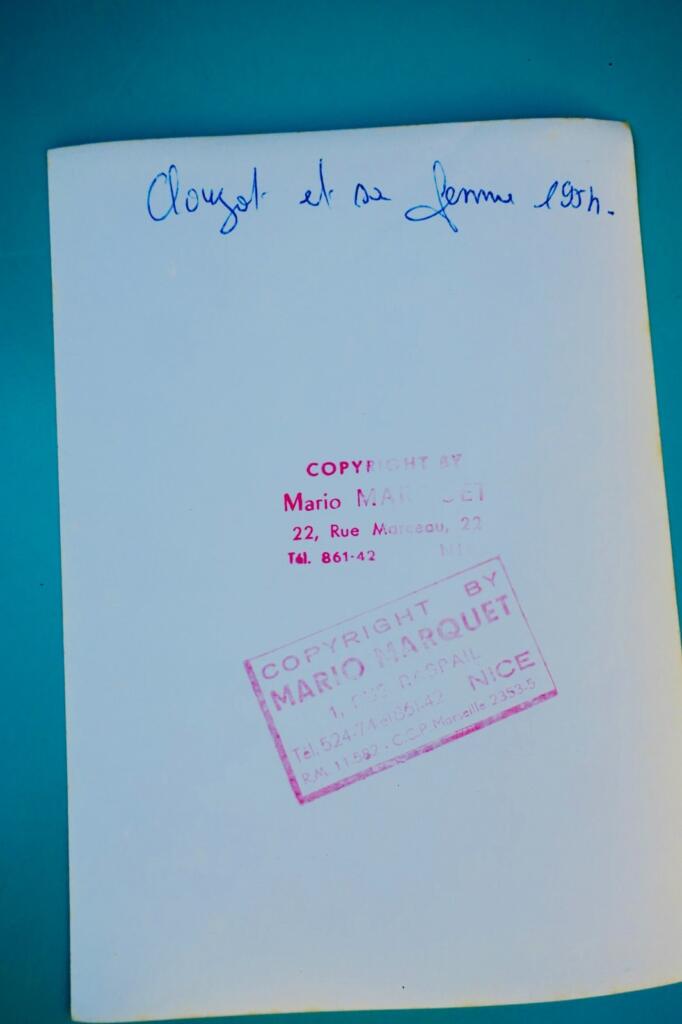 Clouzot et sa femme 1954.
COPYRIGHT BY
Mario MARQUET
22, Rue Marceau, 22
Tél. 861-42 NICE
COPYRIGHT BY
MARIO MARQUET
1, RUE RASPAIL
Tél. 524-74 et 861-42 NICE
R.M. 11.582 - C.C.P. Marseille 2353-5